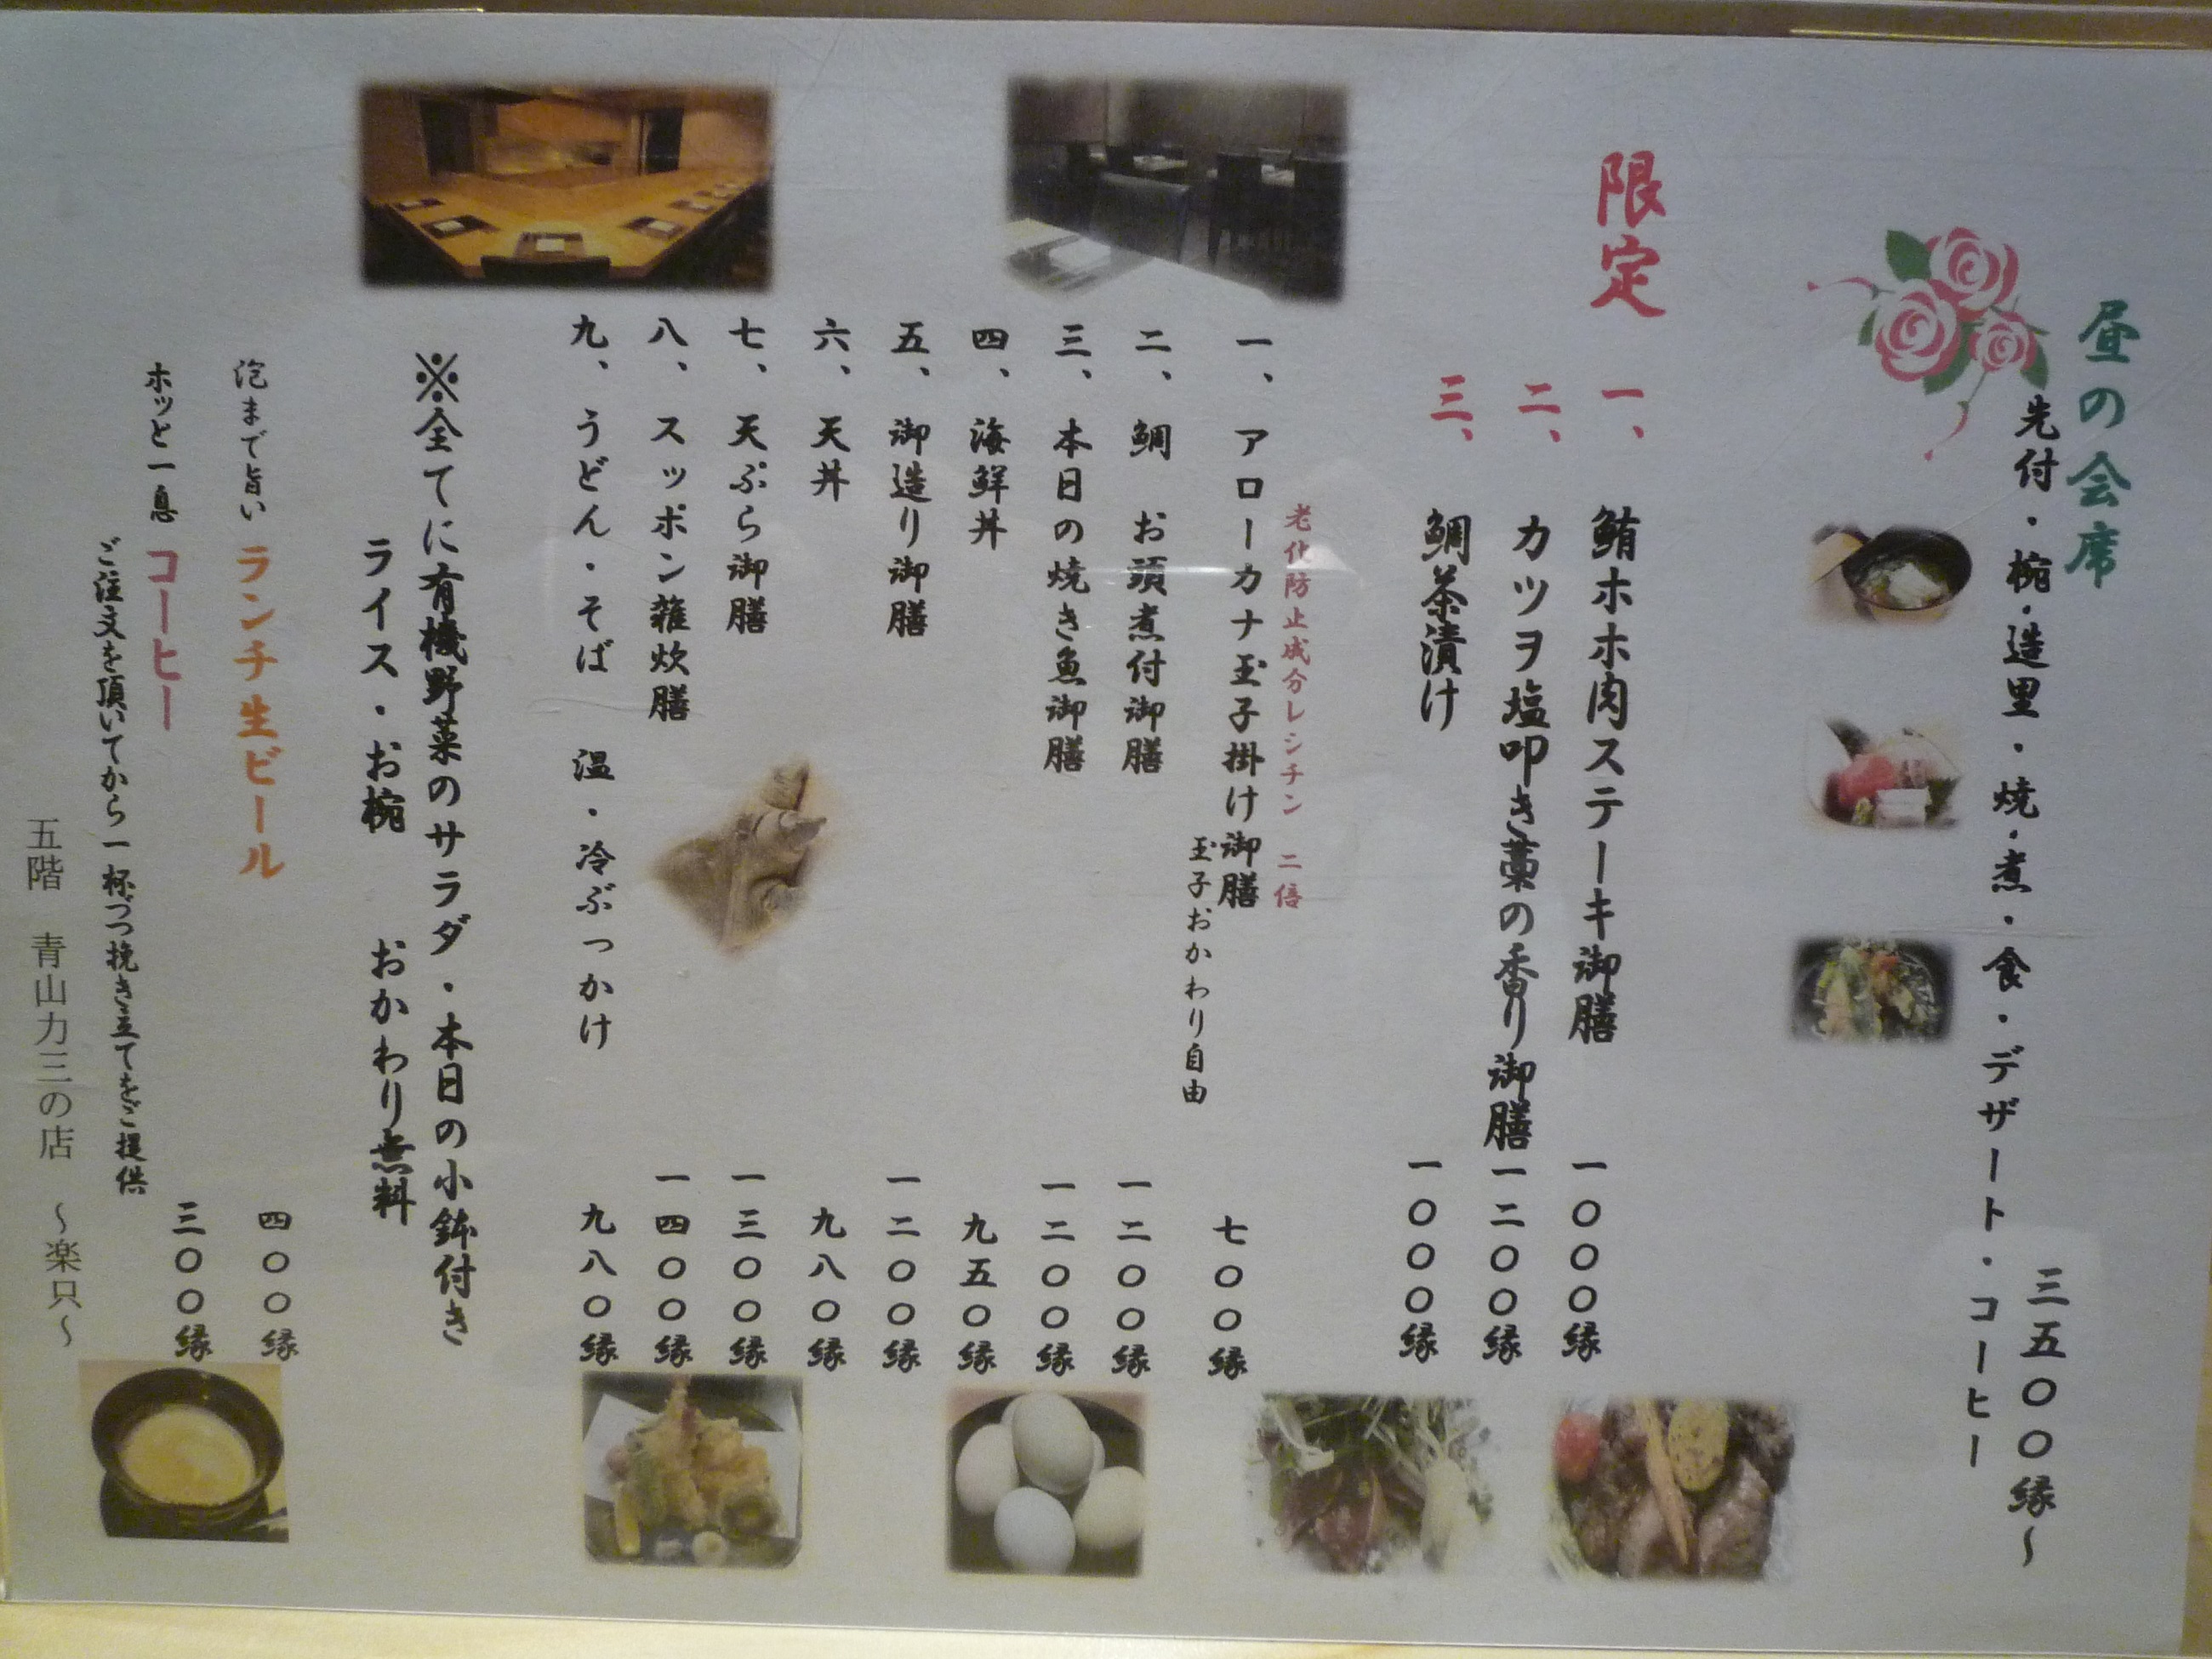 昼の会席
先付・椀・造里・焼・煮・食・デザート・コーヒー
三五〇〇縁～
限定
一、鮪ホホ肉ステーキ御膳 一〇〇〇縁
二、カツヲ塩叩き藁の香り御膳 一二〇〇縁
三、鯛茶漬け 一〇〇〇縁
老化防止成分レシチン 二倍
一、アローカナ玉子掛け御膳 七〇〇縁
玉子おかわり自由
二、鯛 お頭煮付御膳 一二〇〇縁
三、本日の焼き魚御膳 一二〇〇縁
四、海鮮丼 九五〇縁
五、御造り御膳 一二〇〇縁
六、天丼 九八〇縁
七、天ぷら御膳 一三〇〇縁
八、スッポン雑炊膳 一四〇〇縁
九、うどん・そば 温・冷ぶっかけ 九八〇縁
※全てに有機野菜のサラダ・本日の小鉢付き
ライス・お椀 おかわり無料
泡まで旨い ランチ生ビール 四〇〇縁
ホッと一息 コーヒー 三〇〇縁
ご注文を頂いてから一杯づつ挽き立てをご提供
五階 青山力三の店 ～楽只～